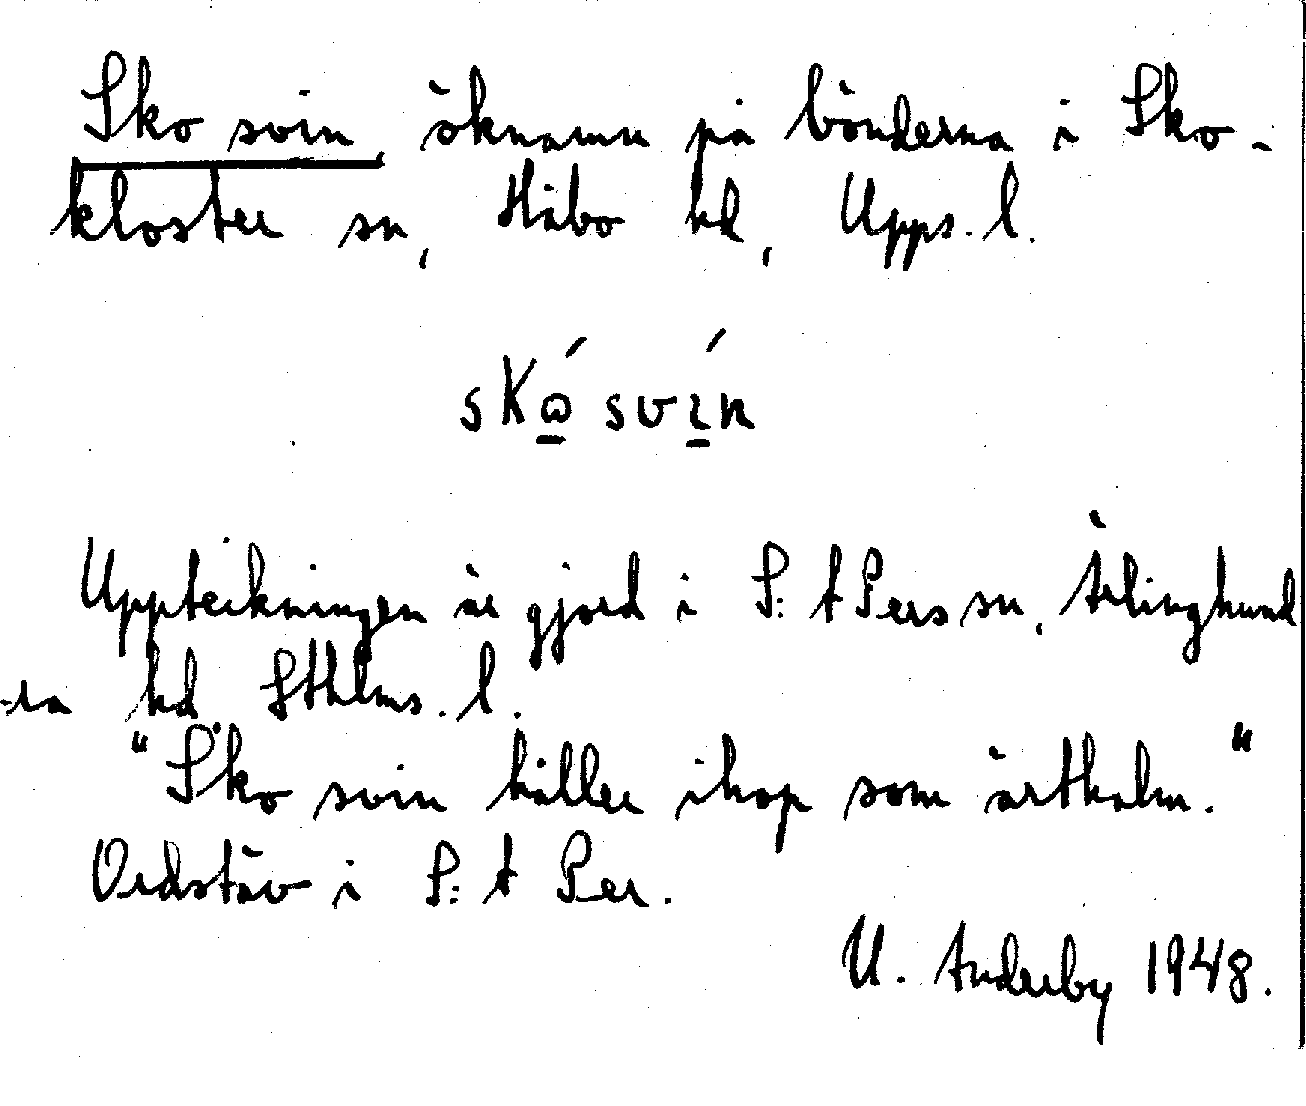 Sko svin, öknamn på bönderna i Sko-
kloster sn, Håbo hd, Upps. l.
skώ svín
Uppteckningen är gjord i S:t Pers sn, Ärlinghund
-ra hd. Sthlms. l.
"Sko svin håller ihop som ärthalm."
Ordstäv i S:t Per.
U. Anderby 1948.